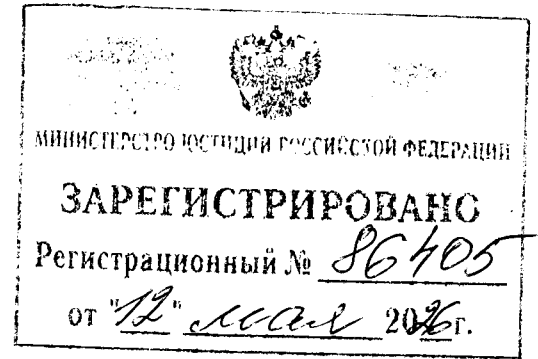 МИНИСТЕРСТВО ЮСТИЦИИ РОССИЙСКОЙ ФЕДЕРАЦИИ
ЗАРЕГИСТРИРОВАНО
Регистрационный № 86405
от "12" мая 2026г.